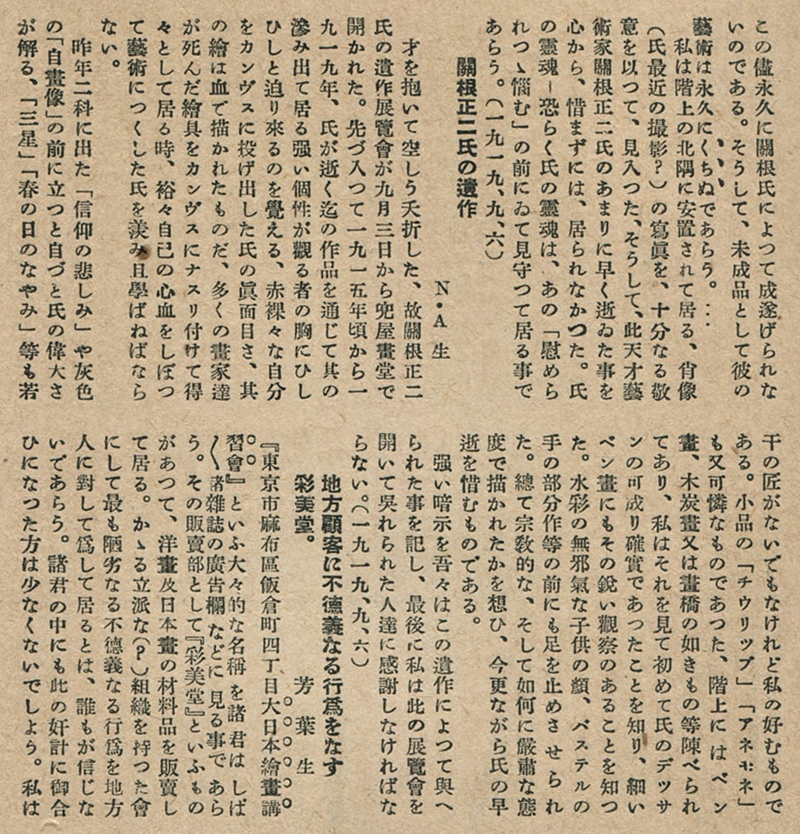 この儘永久に關根氏によつて成遂げられな
いのである。そうして、未成品として彼の
藝術は永久にくちぬであらう。…
私は階上の北隅に安置されて居る、肖像
(氏最近の撮影?)の寫眞を、十分なる敬
意を以つて、見入つた、そうして、此天才藝
術家關根正二氏のあまりに早く逝ゐた事を
心から、惜まずには、居られなかつた。氏
の靈魂－恐らく氏の靈魂は、あの「慰めら
れつゝ惱む」の前にゐて見守つて居る事で
あらう。(一九一九、九、六)
關根正二氏の遺作
N・A生
才を抱いて空しう夭折した、故關根正二
氏の遺作展覽會が九月三日から兜屋畫堂で
開かれた。先づ入つて一九一五年頃から一
九一九年、氏が逝く迄の作品を通じて其の
滲み出て居る强い個性が觀る者の胸にひし
ひしと迫り來るのを覺える、赤裸々な自分
をカンヴスに投げ出した氏の眞面目さ、其
の繪は血で描かれたものだ、多くの畫家達
が死んだ繪具をカンヴスにナスリ付けて得
々として居る時、裕々自己の心血をしぼつ
て藝術につくした氏を羨み且學ばねばなら
ない。
昨年二科に出た「信仰の悲しみ」や灰色
の「自畫像」の前に立つと自づと氏の偉大さ
が解る、「三星」「春の日のなやみ」等も若
干の匠がないでもなけれど私の好むもので
ある。小品の「チウリツプ」「アネモネ」
も又可憐なものであつた、階上にはペン
畫、木炭畫又は畫稿の如きもの等陳べられ
てあり、私はそれを見て初めて氏のデツサ
ンの可成り確實であつたことを知り、細い
ペン畫にもその銳い觀察のあることを知つ
た。水彩の無邪氣な子供の顏、パステルの
手の部分作等の前にも足を止めさせられ
た。總て宗敎的な、そして如何に嚴肅な態
度で描かれたかを想ひ、今更ながら氏の早
逝を惜むものである。
强い暗示を吾々はこの遺作によつて與へ
られた事を記し、最後に私は此の展覽會を
開いて吳れられた人達に感謝しなければな
らない。(一九一九、九、六)
地方顧客に不德義なる行爲をなす
彩美堂。
芳葉生
『東京市麻布區飯倉町四丁目大日本繪畫講
習會』といふ大々的な名稱を諸君はしば
〱諸雜誌の廣告欄などに見る事であら
う。その販賣部として『彩美堂』といふもの
があつて、洋畫及日本畫の材料品を販賣し
て居る。かゝる立派な(?)組織を持つた會
にして最も陋劣なる不德義なる行爲を地方
人に對して爲して居るとは、誰もが信じな
いであらう。諸君の中にも此の奸計に御合
ひになつた方は少なくないでしよう。私は